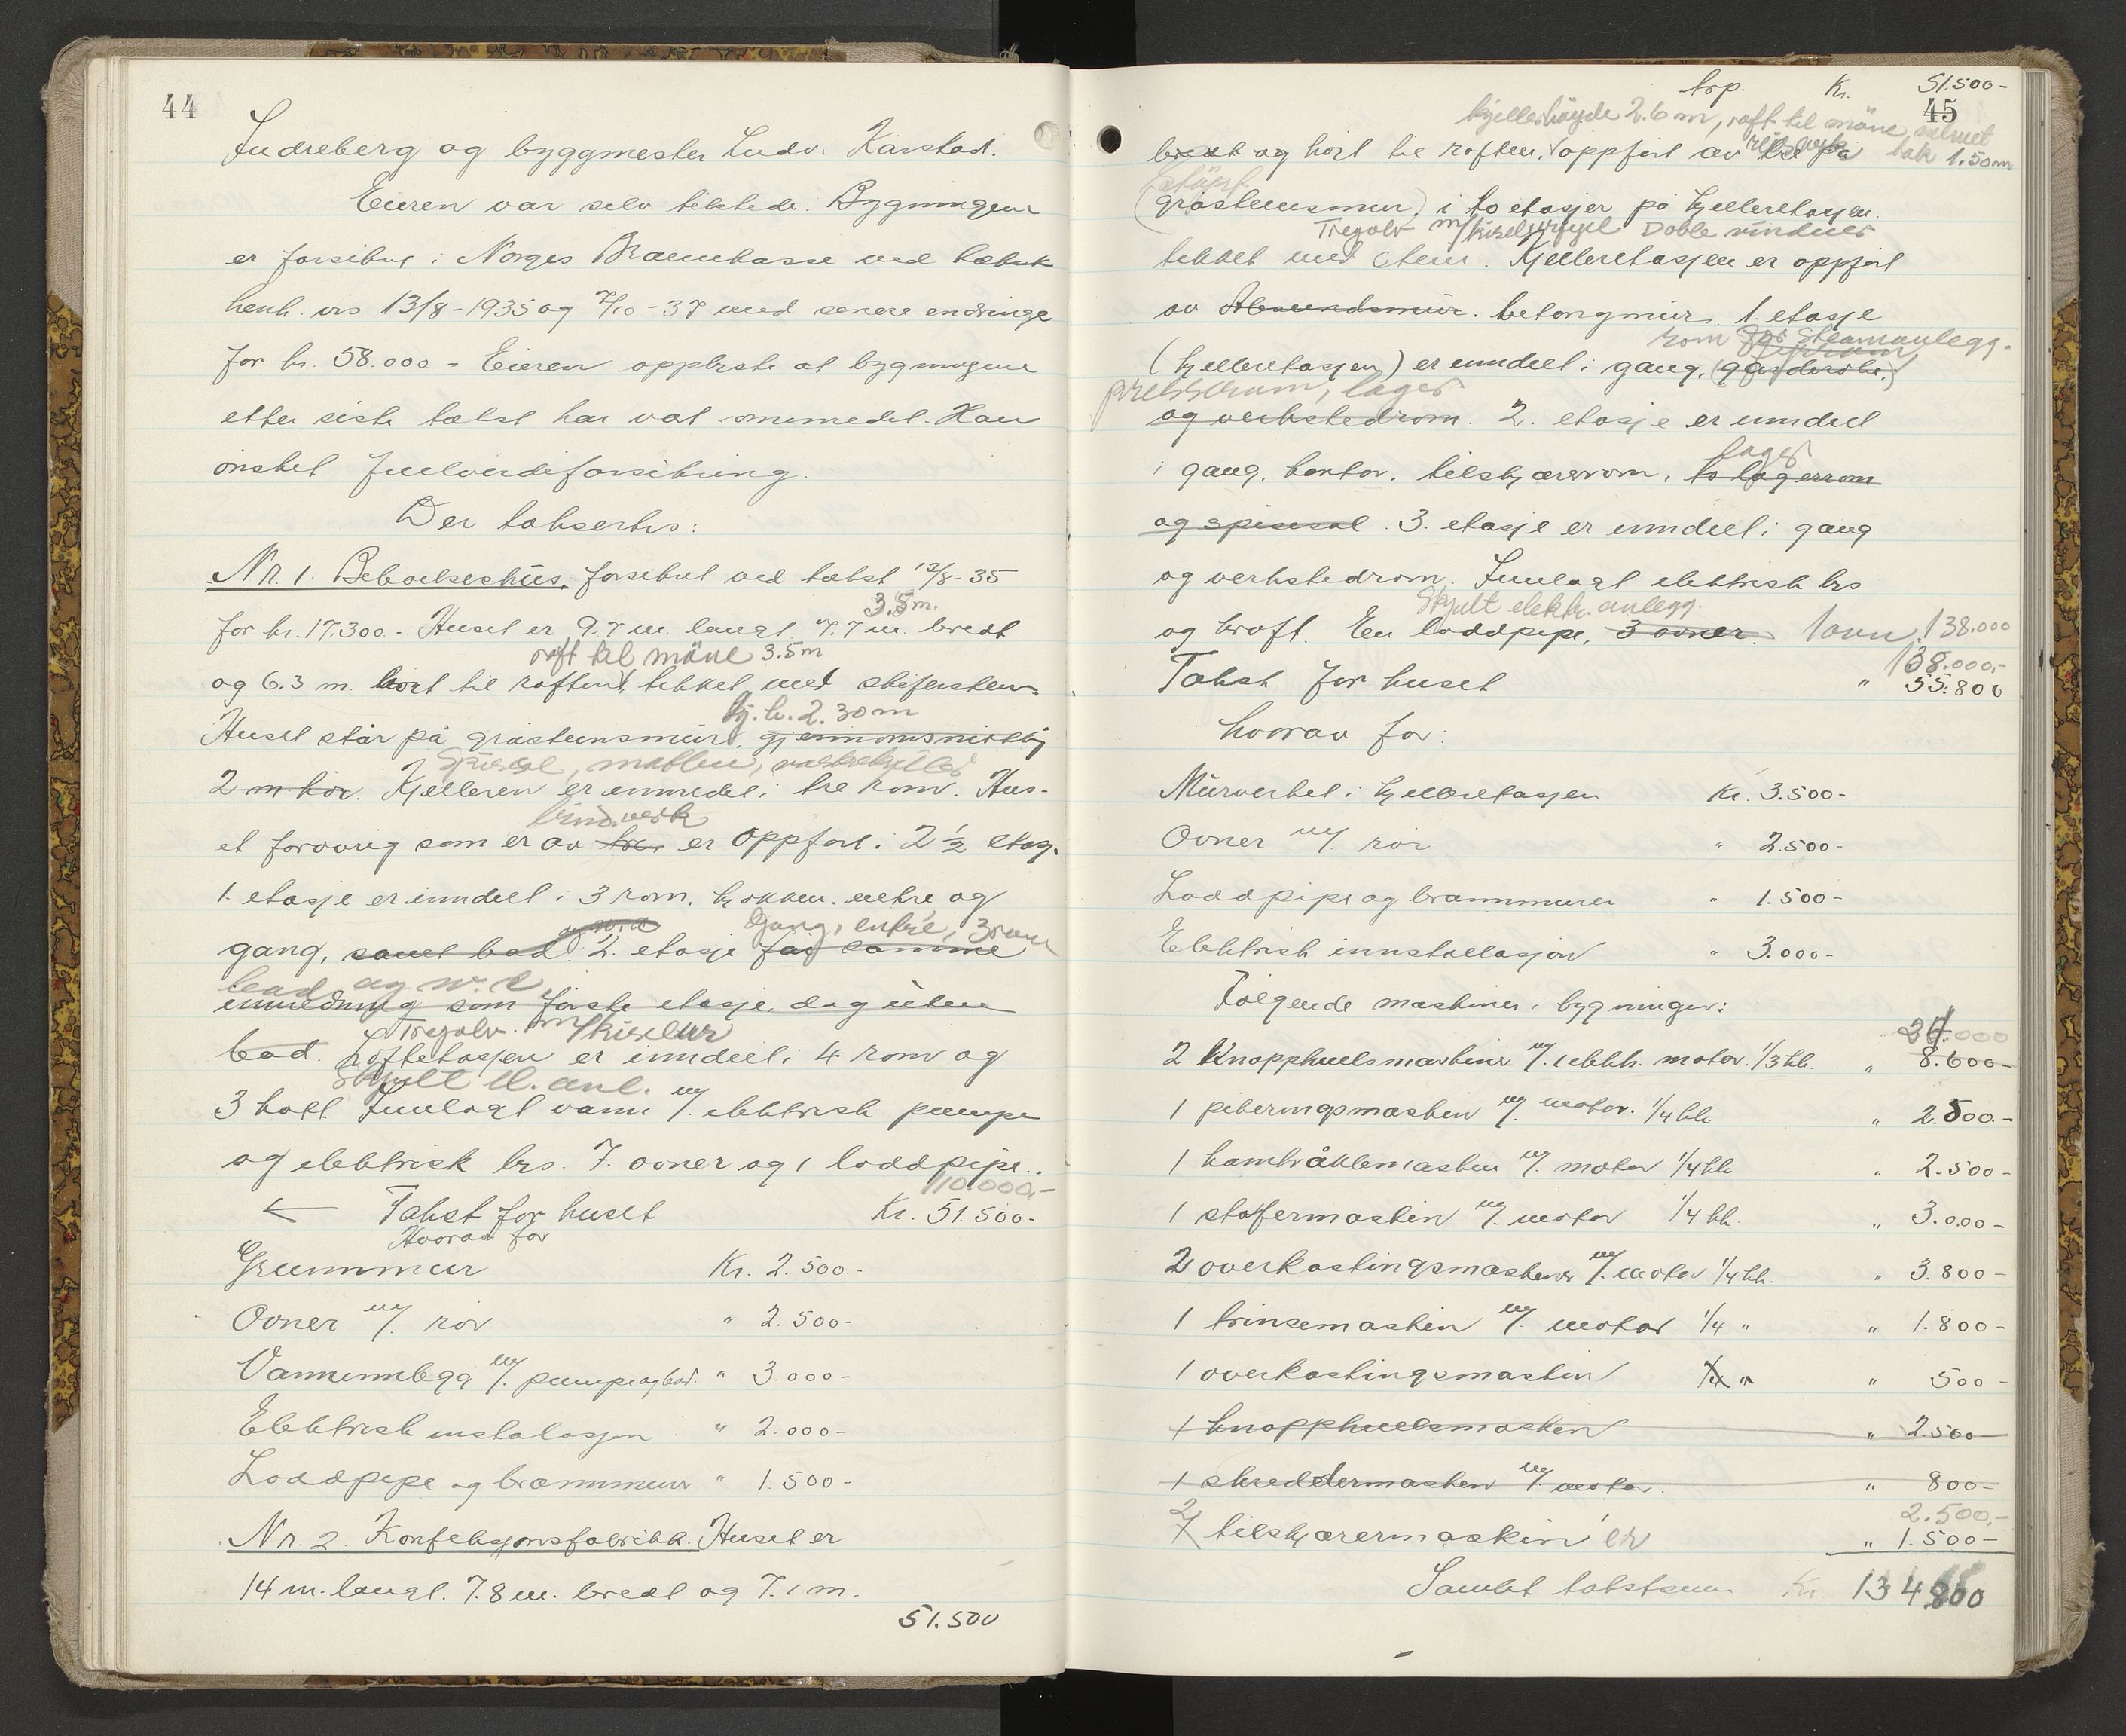 44
Indreberg og byggmester Ludv. Karstad.
Eieren var selv tilstede. Bygningene
er forsikret i Norges Brannkasse ved takst
henh. vis 13/8-1935 og 7/10-37 med senere endringe
for kr. 58.000 - Eieren opplyste at bygningene
etter siste takst har vært ominnredet. Han
ønsket fullverdiforsikring.
Der taksertes:
Nr. 1. Beboelseshus, forsikret ved takst 13/8-35
3.5m.
for kr. 17.300.- Huset er 9.7 m. langt 7.7 m. bredt
raft til möne 3.5m
og 6.3 m. høit til raften, tekket med skifersten.
Kj. h. 2.30m
Huset står på gråstensmur, gjennomsnittlig
Spisesal, matbu, vaskekjeller
2 m høi. Kjelleren er innredet i tre rom. Hus-
bindverk
et forøvrig som er av tre, er oppført i 2 1/2 etag.
1. etasje er inndelt i 3 rom, kjøkken, entre og
og w.c. Gang, entré, 3 rom
gang, samt bad. 2. etasje har samme
bad og w.c.
innredning som første etasje, dog uten
Tregolv m/kiselur
bad. Loftetasjen er inndelt i 4 rom og
Skjult el. anl.
3 kott. Innlagt vann m/. elektrisk pumpe
og elektrisk lys. 7. ovner og 1 loddpipe.
110.000,-
← Takst for huset Kr. 51.500.-
Hvorav for
Grunnmur Kr. 2.500.-
Ovner m/. rør " 2.500-
Vanninnlegg m/. pumpe og bad. " 3.000-
Elektrisk instalasjon " 2.000-
Loddpipe og brannmurer " 1.500-
Nr. 2. Konfeksjonsfabrikk. Huset er
14 m. langt. 7.8 m. bredt og 7.1 m.
51.500
trp. Kr. 51.500-
45
kjellerhöyde 2.6 m, raft til möne, valmet
tak 1.50m
bredt og høit til raften, oppført av tre på
støpt
(gråstensmur), i to etasjer på kjelleretasjen.
Tregolv m/kiselgugel Doble vinduer
tekket med sten. Kjelleretasjen er oppført
av Alesundsmur. betongmur. 1. etasje
rom for Steamanlegg.
(kjelleretasjen) er inndelt i gang, (garderobe)
presserum, lager
og verkstedrom. 2. etasje er inndelt
lager
i gang, kontor, tilskjærerrom, to lagerrom
og spisesal. 3. etasje er inndelt i gang
og verkstedrom. Innlagt elektrisk lys
Skjult elektr. anlegg.
og kraft. En loddpipe, 3 ovner. 1 ovn 138.000
138.000,-
Takst for huset " 55.800
hvorav for:
Murverket i kjelleretasjen Kr. 3.500-
Ovner m/. rør " 2.500-
Loddpipe og brannmurer " 1.500-
Elektrisk innstallasjon " 3.000-
Følgende maskiner i bygningen:
24.000
2 Knapphullsmaskiner m/. elektr. motor. 1/3 hk. " 8.600-
1 pikeringsmaskin m/. motor. 1/4 hk " 2.500-
1 kantråklemaskin m/. motor 1/4 hk " 2.500-
1 staffermaskin m/. motor 1/4 hk. " 3.000-
2 overkastingsmaskiner m/. motor 1/4 hk. " 3.800-
1 trinsemaskin m/. motor 1/4 " " 1.800-
1 overkastingsmaskin 1/4 " " 500-
1 knapphullsmaskin " 2.500
1 skreddermaskin m/. motor. " 800-
2 2.500,-
1 tilskjærermaskin er " 1.500-
Samlet takstsum Kr 134800